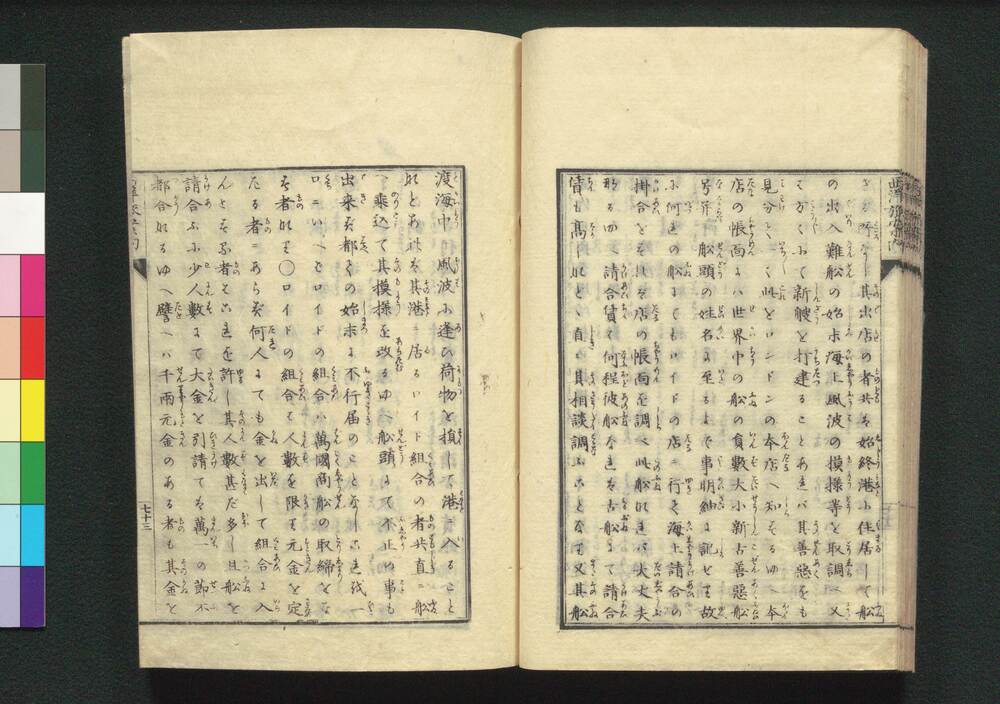 其出店の者共を始終港に住居して船
の出入難船の始末海上風波の模様等を取調べ又
て新艘を打建ることあれバ其善悪をも
見分し此をロンドンの本店へ知らするゆへ本
店の帳面にハ世界中の船の員數大小新古善悪船
号并船頭の姓名に至るまで事明細に記せり故
に何れの船にてもロイドの店に行き海上請合の
掛合をすれバ店の帳面を調べ此船なれバ大丈夫
なるゆへ請合賃も何程彼船なれバ古船にて請合
賃も高しなどゝ直に其相談調ふことなり又其船
渡海中風波に逢ひ荷物を損して港に入ること
なとあれバ其港に居るロイド組合の者共直に船
へ乗込て其模様を改るゆへ船頭にて不正の事も
出来ず都ての始末に不行届のことなしこれ我一
口にいへバロイドの組合ハ萬國商船の取締をな
す者なり〇ロイドの組合ハ人數を限らず元金を定
たる者にあらず何人にても金を出して組合に入
んと云ふ者ハこれを許し其人數甚だ多し且船を
請合ふに少人數にて大金を引請てハ萬一の節不
都合なるゆへ譬へハ千両元金のある者も其金を
七十三